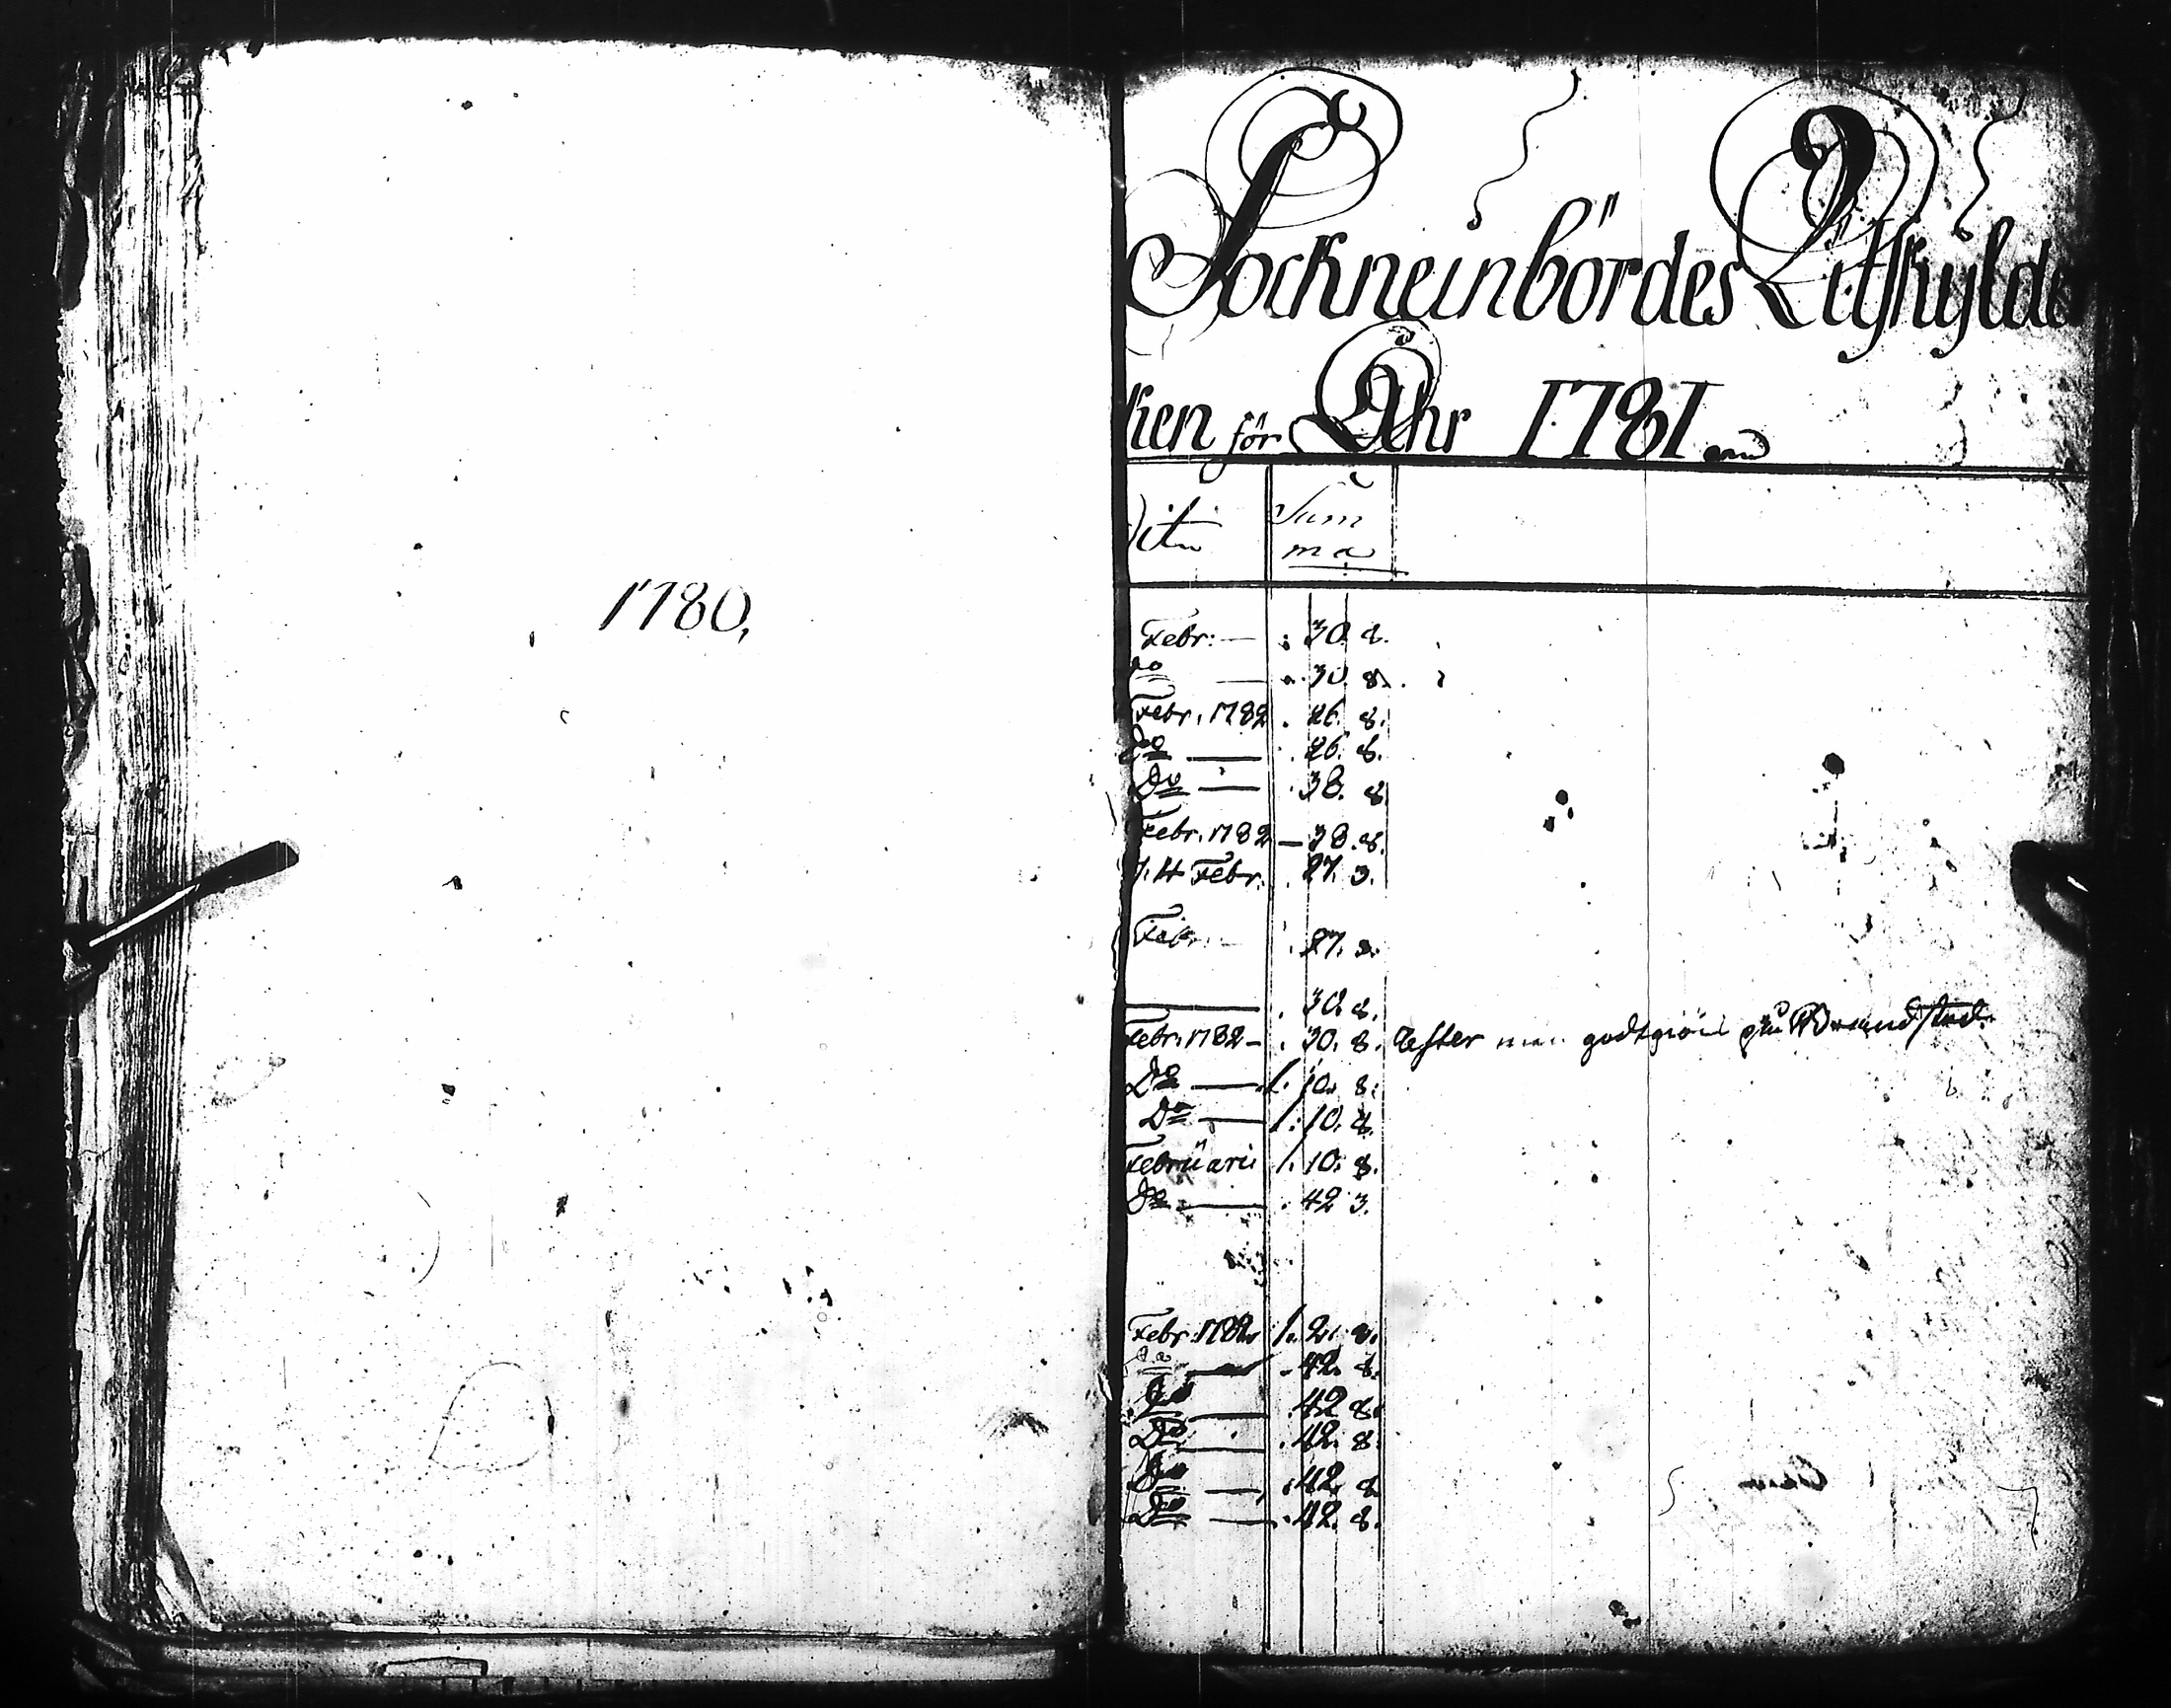 1780,
Sockneinbördes Utskylde
ken för Åhr 1781
Sum
ma
Febr: — : 30. 8.
do — . 30. 8.
Febr. 1782 . 26. 8.
do — . 26. 8.
Do — . 38. 8
Febr. 1782 — 38. 8.
Febr. . 27. 3.
. 27. 3.
— . 30. 8.
Febr. 1782 — . 30. 8. Efter
Do — 1. 10. 8.
Do — 1: 10. 8.
Februarii 1. 10. 8.
Do — . 42 3.
Febr. 1782 1. 2. 8.
do — . 42. 8.
Do — . 42 8.
Do — . 42. 8.
Do — . 42. 8
Do — . 42. 8.